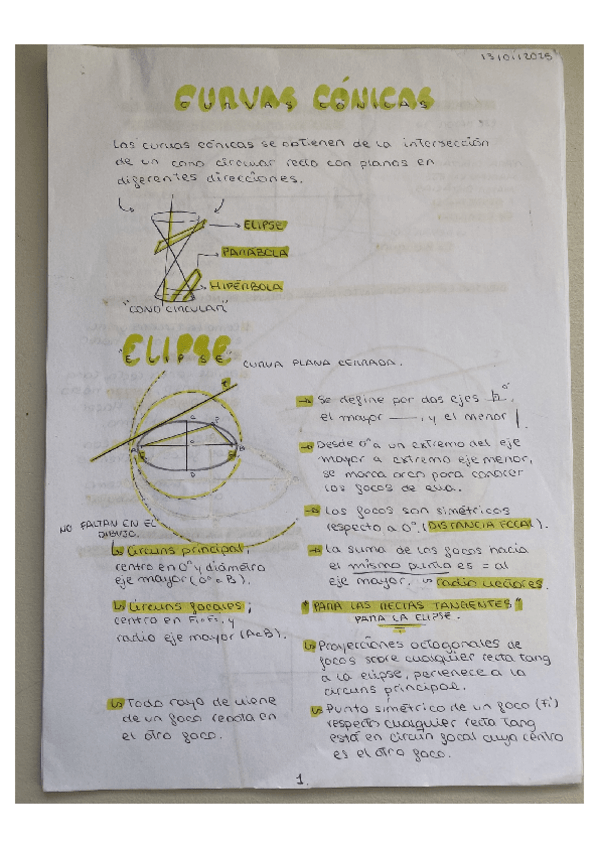 13/01/2025
CURVAS CÓNICAS
CURVAS CÓNICAS
Las curvas cónicas se obtienen de la intersección
de un cono circular recto con planos en
diferentes direcciones.
ELIPSE
PARÁBOLA
HIPÉRBOLA
"CONO CIRCULAR"
ELIPSE
"ELIPSE" CURVA PLANA CERRADA.
Se define por dos ejes
el mayor —, y el menor |.
Desde o a un extremo del eje
mayor a extremo eje menor,
se marca arco para conocer
los focos de
Los focos son simétricos
respecto a O. (DISTANCIA FOCAL).
NO FALTAN EN EL
DIBUJO.
Circuns principal,
centro en O y diámetro
eje mayor
La suma de los focos hacia
el mismo punto es = al
eje mayor. radio vectores.
Circuns focales;
centro en F₁=F₂, y
radio eje mayor (A=B).
"PARA LAS RECTAS TANGENTES"
PARA LA ELIPSE.
Proyecciones octogonales de
focos sobre cualquier recta tang
a la elipse, pertenece a la
circuns principal.
Todo rayo de viene
de un foco rebota en
el otro foco.
Punto simétrico de un foco (F₁')
respecto cualquier recta Tang
está en circun focal cuyo centro
es el otro foco.
1